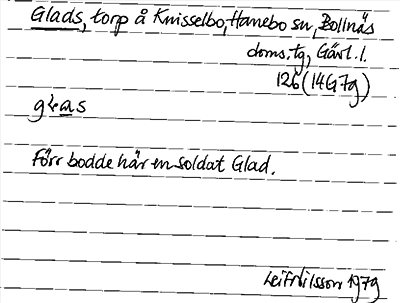 Glads, torp å Knisselbo, Hanebo sn, Bollnäs
doms.tg, Gävl.l.
12b (14G7g)
glas
Förr bodde här en soldat Glad.
Leif Nilsson 1979